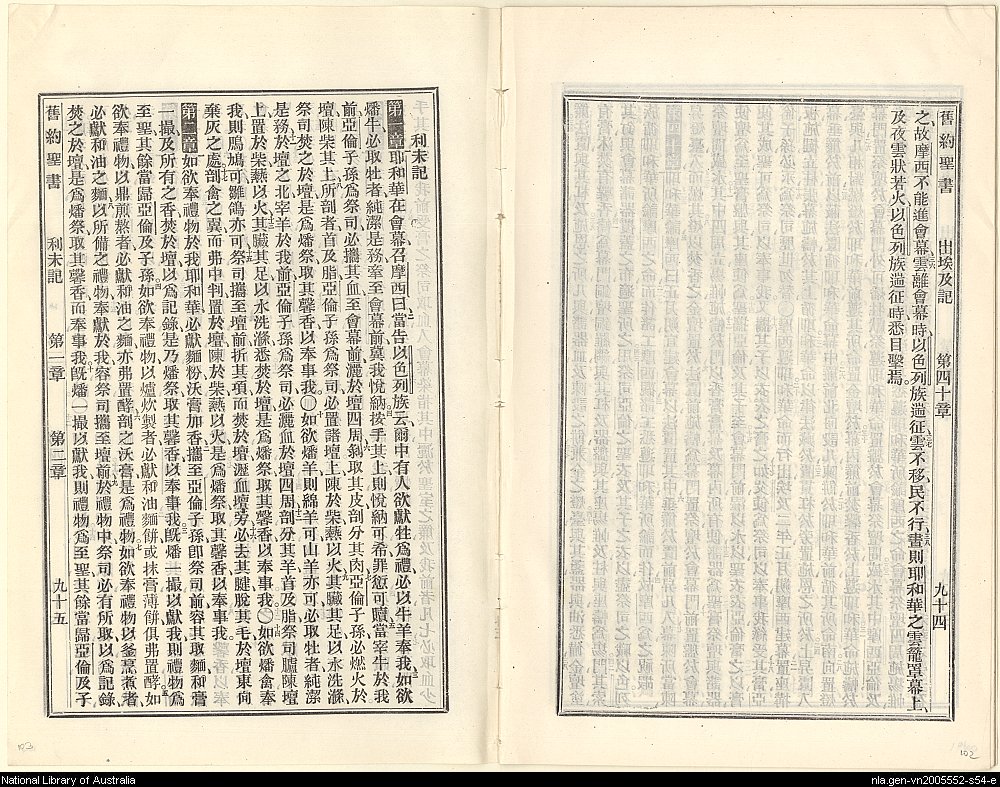 舊約聖書 出埃及記 第四十章 九十四
之、故摩西不能進會幕、雲離會幕時、以色列族遄征、雲不移、民不行、晝則耶和華之雲籠罩幕上、
及夜雲狀若火、以色列族遄征時、悉目擊焉。
利未記
第一章 耶和華在會幕召摩西曰、當告以色列族云、爾中有人欲獻牲爲禮、必以牛羊奉我、如欲
燔牛、必取牡者、純潔是務、牽至會幕前、冀我悅納、按手其上、則悅納可希、罪愆可贖、當宰牛於我
前、亞倫子孫爲祭司、必攜其血至會幕前、灑於壇四周、剝取其皮、剖分其肉、亞倫子孫必燃火於
壇、陳柴其上、所剖者首及脂、亞倫子孫爲祭司、必置諸壇上、陳於柴、爇以火、其臟其足、以水洗滌、
祭司焚之於壇、是爲燔祭、取其馨香、以奉事我、○如欲燔羊、則綿羊可、山羊亦可、必取牡者、純潔
是務、於壇之北、宰羊於我前、亞倫子孫爲祭司、必灑血於壇四周、剖分其羊、首及脂、祭司臚陳壇
上、置於柴、爇以火、其臟其足、以水洗滌、悉焚於壇、是爲燔祭、取其馨香、以奉事我、○如欲燔禽奉
我、則鳲鳩可、雛鴿亦可、祭司攜至壇前、折其項而焚於壇、瀝血壇旁、必去其膆、脫其毛、於壇東向
棄灰之處、剖禽之翼、而弗中判、置於壇、陳於柴、爇以火、是爲燔祭、取其馨香、以奉事我。
第二章 如欲奉禮物於我耶和華、必獻麵粉、沃膏加香、攜至亞倫子孫、卽祭司前、容其取麵和膏
一撮、及所有之香、焚於壇、以爲記錄、是乃燔祭、取其馨香、以奉事我、旣燔一撮以獻我、則禮物爲
至聖、其餘當歸亞倫及子孫、如欲奉禮物、以爐炊製者、必獻和油麵餅、或抹膏薄餅、俱弗置酵、如
欲奉禮物、以鼎煎熬者、必獻和油之麵、亦弗置酵、剖之沃膏、是爲禮物、如欲奉禮物、以釜烹煮者、
必獻和油之麵、以所備之禮物、奉獻於我、容祭司攜至壇前、於禮物中、祭司必有所取、以爲記錄、
焚之於壇、是爲燔祭、取其馨香、而奉事我、旣燔一撮以獻我、則禮物爲至聖、其餘當歸亞倫及子
舊約聖書 利未記 第一章 第二章 九十五
103
102
National Library of Australia
nla.gen-vn2005552-s54-e